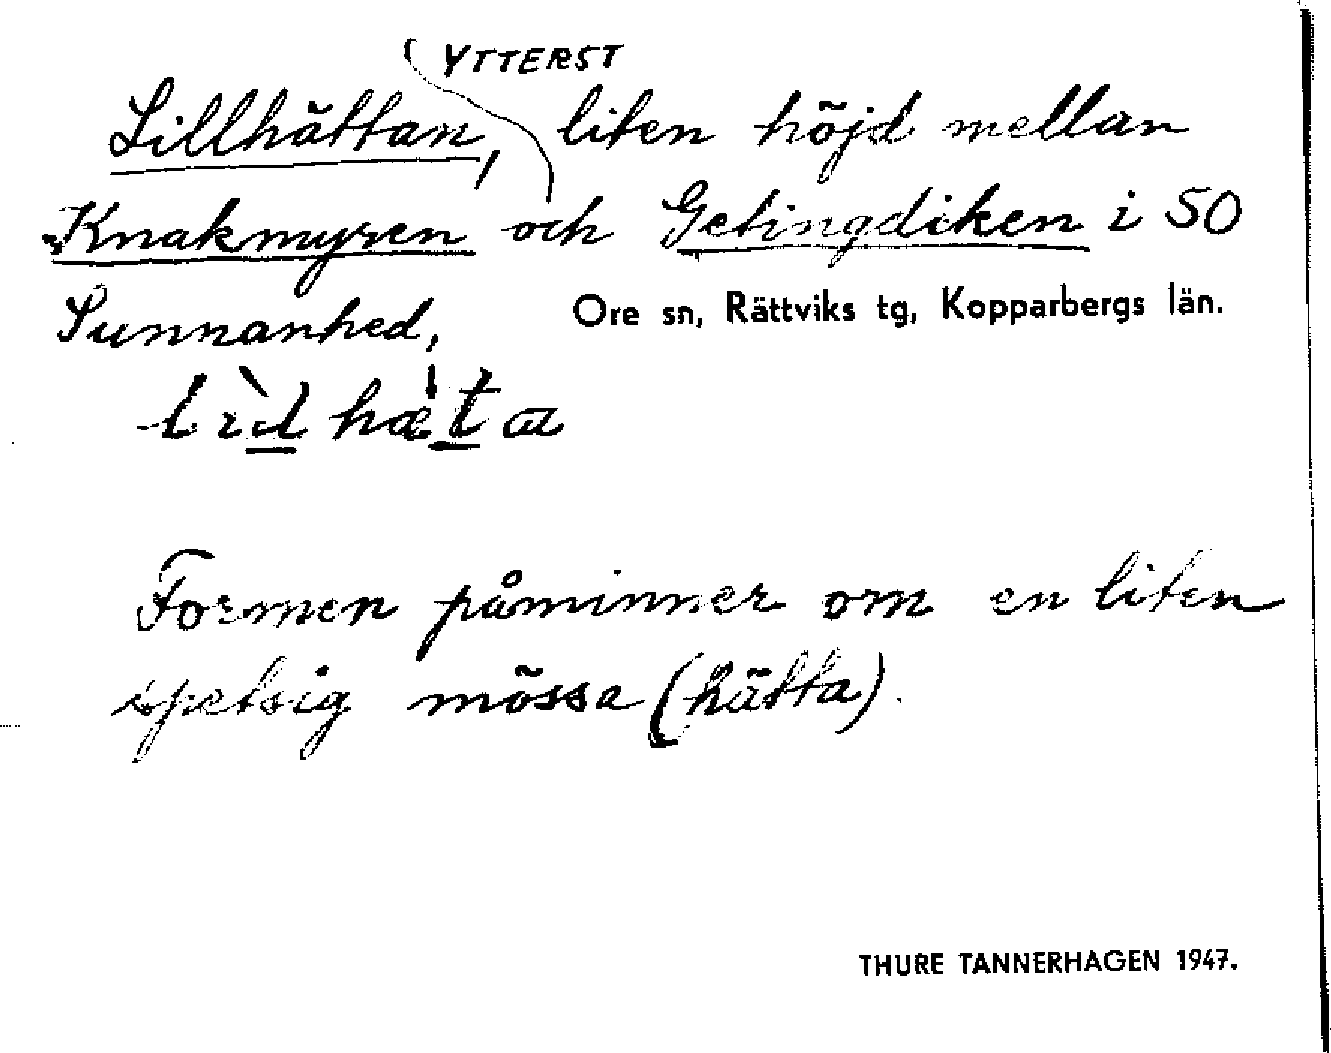 YTTERST
Lillhättan, liten höjd mellan
Knakmyren och Getingdiken i SO
Sunnanhed, Ore sn, Rättviks tg, Kopparbergs län.
Formen påminner om en liten
spetsig mössa (hätta).
THURE TANNERHAGEN 1947.